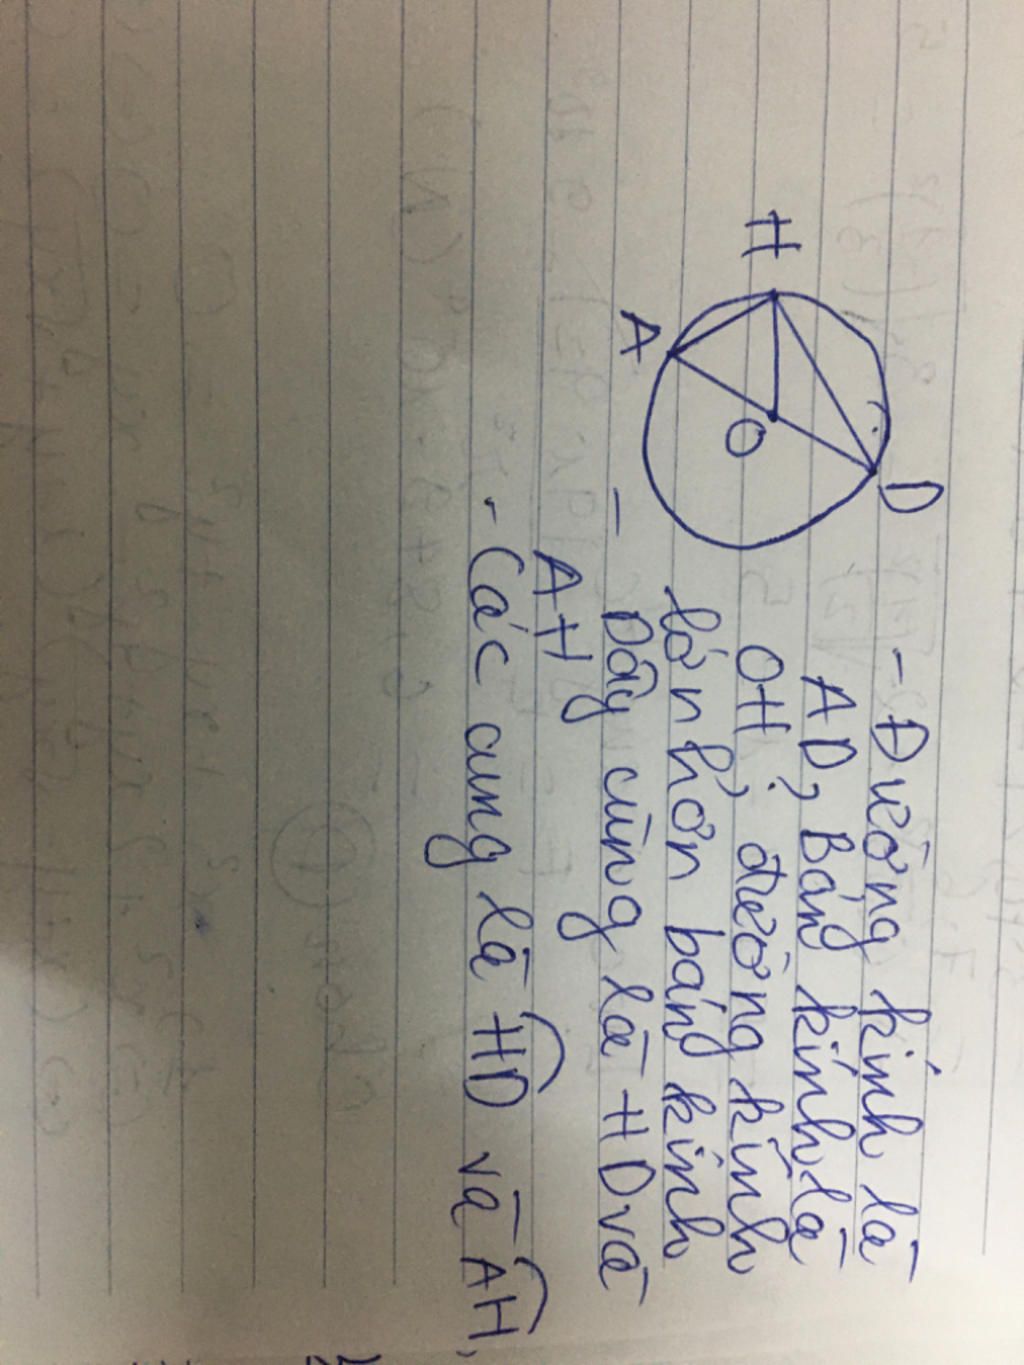 H
A
O
D
- Đường kính là
AD, Bán kính là
OH, đường kính
lớn hơn bán kính
- Dây cùng là HD và
AH
- Các cung là HD và AH,